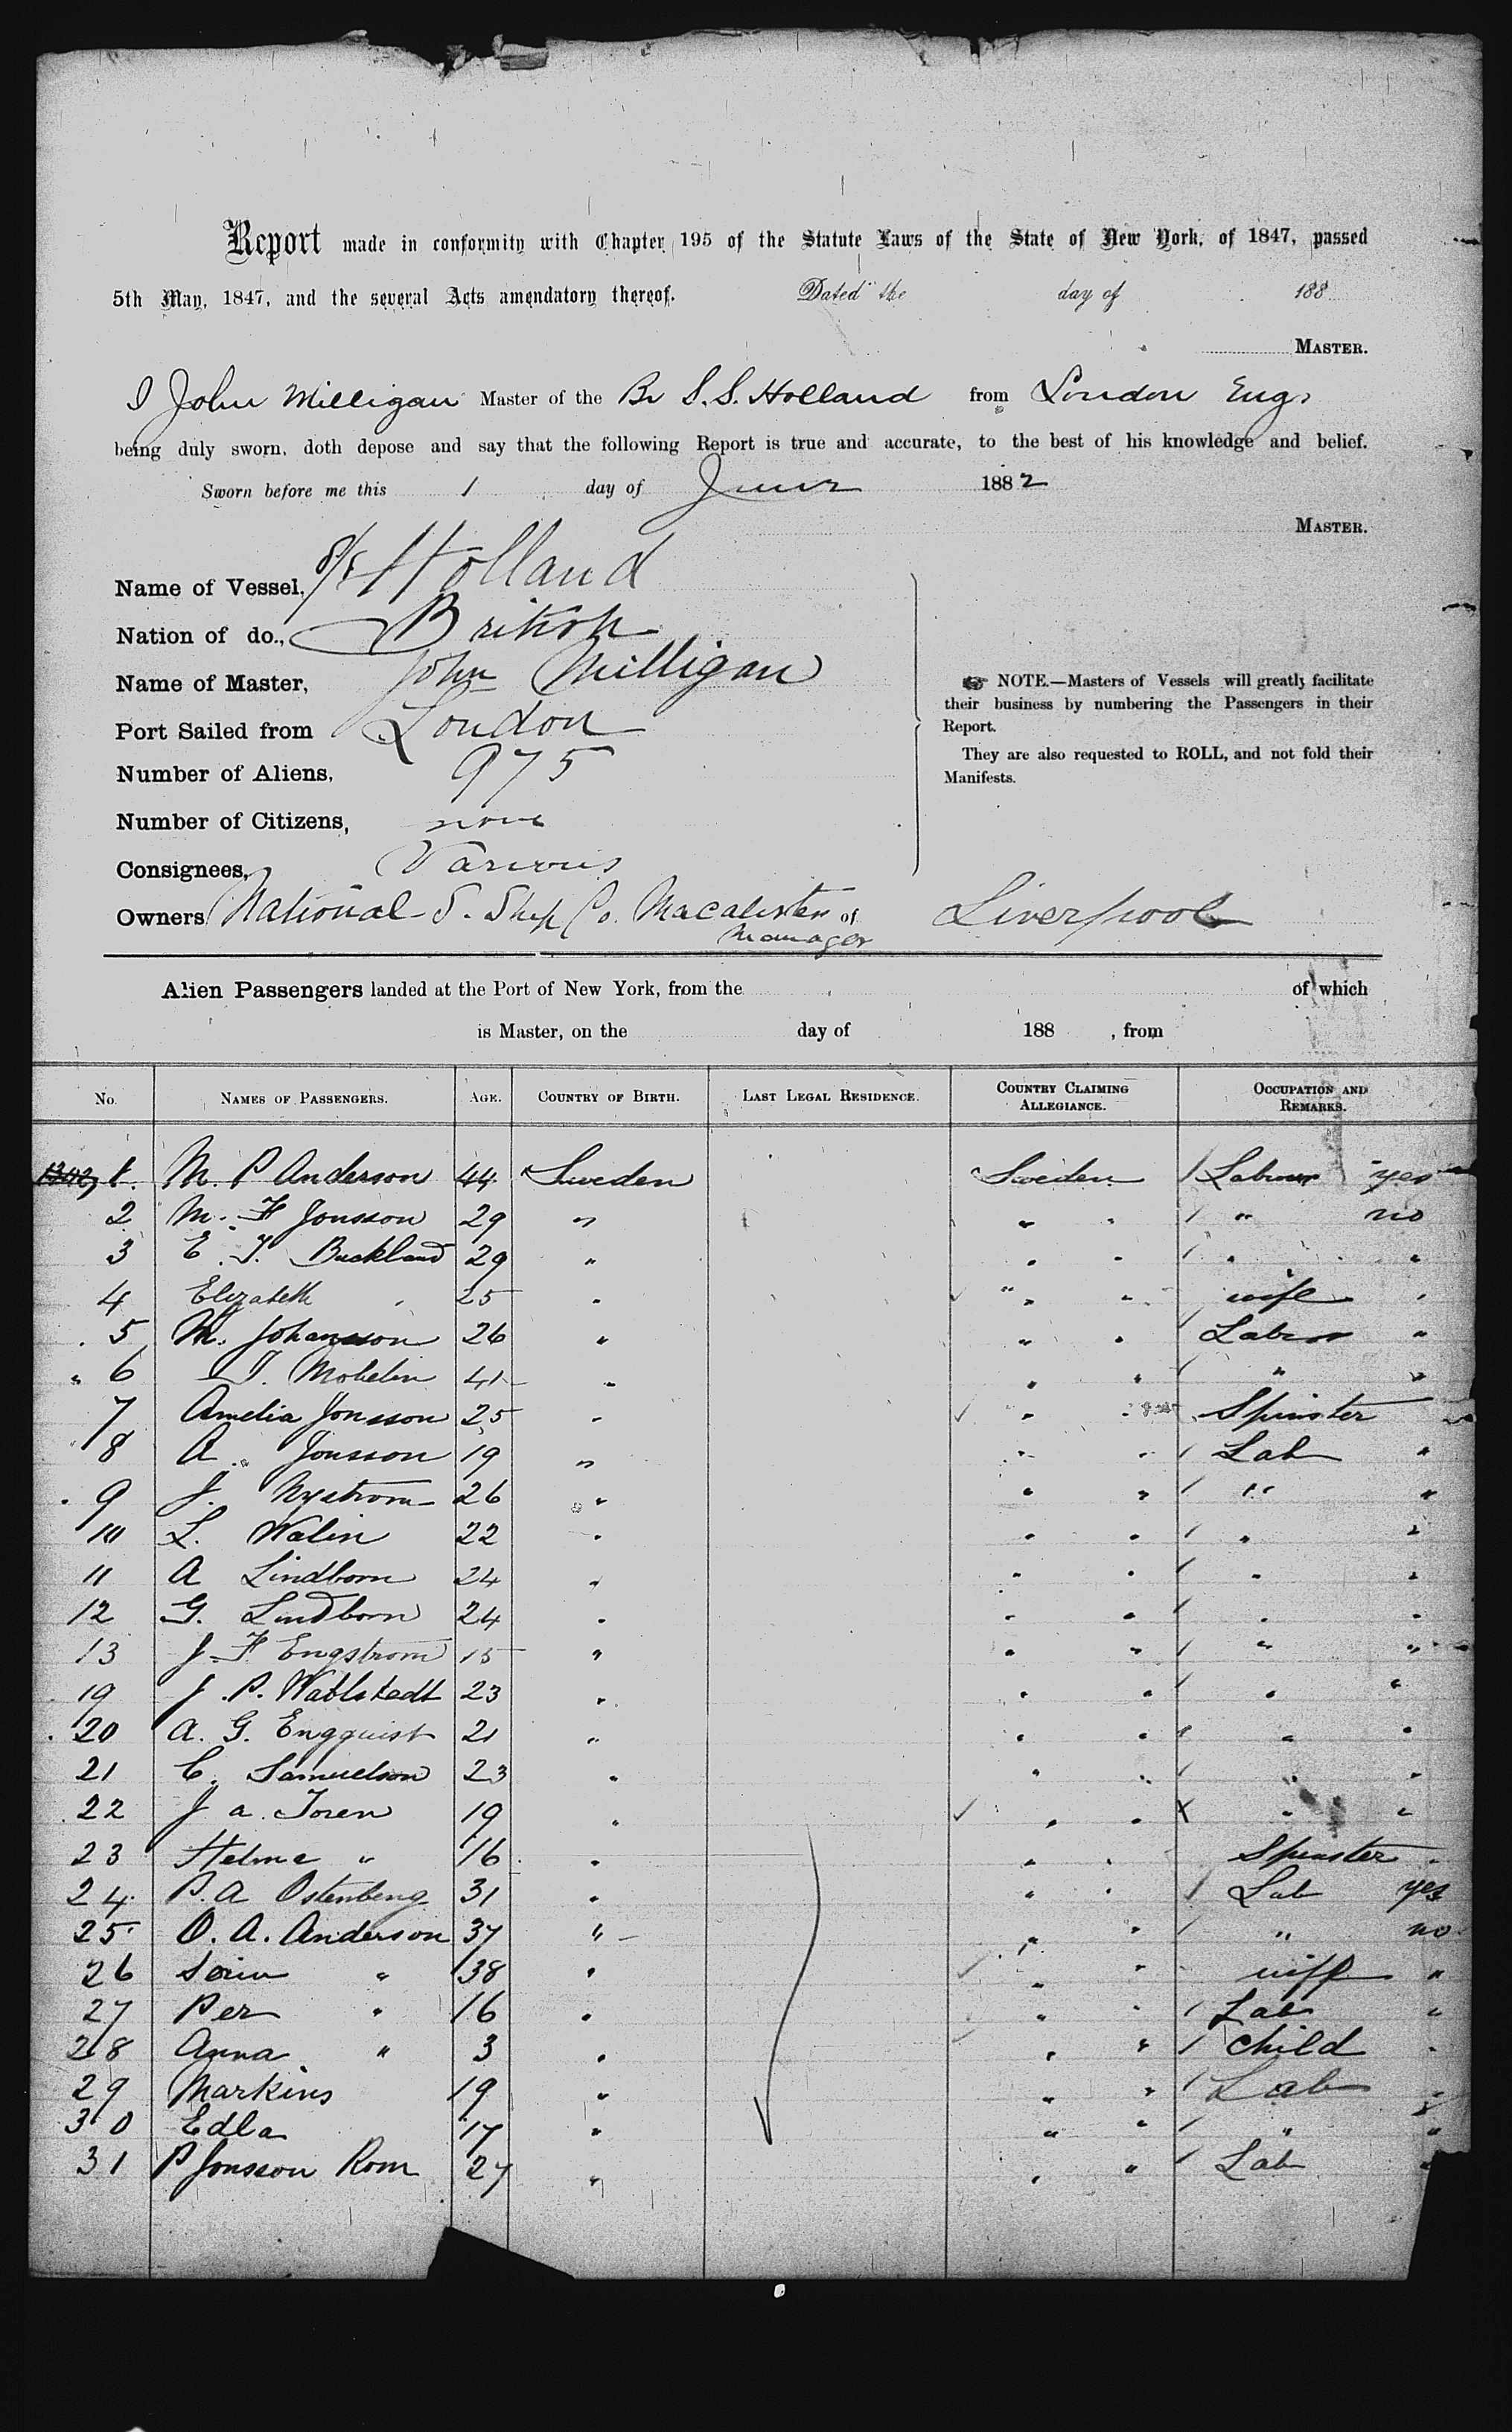 Report made in conformity with Chapter 195 of the Statute Laws of the State of New York, of 1847, passed
5th May, 1847, and the several Acts amendatory thereof. Dated the day of 188
MASTER.
I John Milligan Master of the Br S.S. Holland from London Eng.
being duly sworn, doth depose and say that the following Report is true and accurate, to the best of his knowledge and belief.
Sworn before me this 1 day of June 1882
MASTER.
Name of Vessel, S/S Holland
Nation of do., British
Name of Master, John Milligan
Port Sailed from London
Number of Aliens, 975
Number of Citizens, none
Consignees, Various
Owners National S. Ship Co. Macalister of Liverpool
Manager
NOTE.—Masters of Vessels will greatly facilitate
their business by numbering the Passengers in their
Report.
They are also requested to ROLL, and not fold their
Manifests.
Alien Passengers landed at the Port of New York, from the of which
is Master, on the day of 188 , from
No. NAMES OF PASSENGERS. AGE. COUNTRY OF BIRTH. LAST LEGAL RESIDENCE. COUNTRY CLAIMING ALLEGIANCE. OCCUPATION AND REMARKS.
1. M. P Anderson 44 Sweden Sweden 1 Labour yes
2 M. F Jonsson 29 " " " 1 " no
3 E. T. Buckland 29 " " " 1 " "
4 Elizabeth " 25 " " " wife "
5 M. Johansson 26 " " " 1 Labour "
6 T. Mobelin 41 " " " 1 " "
7 Amelia Jonsson 25 " " " Spinster "
8 A. Jonsson 19 " " " 1 Lab "
9 J. Nystrom 26 " " " 1 " "
10 L. Walin 22 " " " 1 " "
11 A Lindborn 24 " " " 1 " "
12 G. Lindborn 24 " " " 1 " "
13 J. F Engstrom 15 " " " 1 " "
19 J. P. Wahlstedt 23 " " " 1 " "
20 A. G. Engquist 21 " " " 1 " "
21 C. Samuelson 23 " " " 1 " "
22 J a. Toren 19 " " " X " "
23 Helma " 16 " " " Spinster "
24 P. A Ostenberg 31 " " " 1 Lab yes
25 O. A. Anderson 37 " " " 1 " no
26 " 38 " " " wife "
27 Per " 16 " " " 1 Lab "
28 Anna " 3 " " " 1 child "
29 Markins 19 " " " 1 Lab "
30 Edla 17 " " " 1 " "
31 P Jonsson Rom 27 " " " 1 Lab "